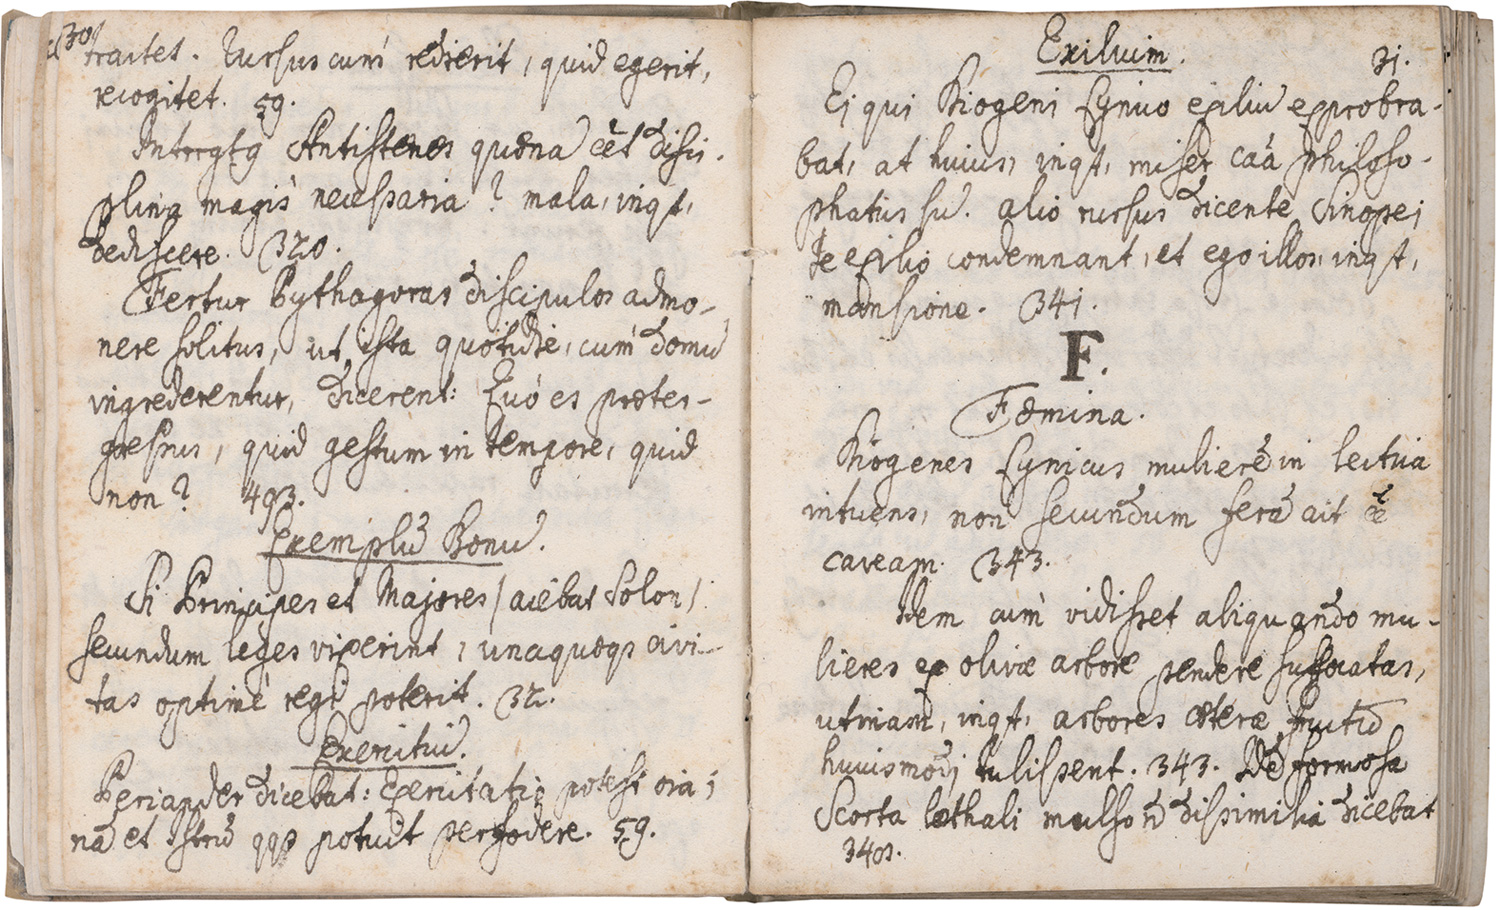 30
tractet. Rursus cum redierit, quid egerit,
recogitet. 59.
Antisthenes quænã ẽet disci-
plina magis necessaria? mala, inqt,
dediscere. 320.
Fertur Pythagoras discipulos admo-
nere solitus, ut ista quotidie, cum domũ
ingrederentur, dicerent: Quo es præter-
gressus, quid gestum in tempore, quid
non? 493.
Exemplũ Bonũ.
Si Principes et Majores / aiebat Solon /
secundum leges vixerint, unaquæqs civi-
tas optime regi poterit. 32.
Periander dicebat: Exercitatio potest oĩa;
nã et Istmũ potuit perfodere. 59.
Exilium.
31.
Ei qui Diogeni Cynico exiliũ exprobra-
bat, at huius, inqt, miser caũa philoso-
phatus sũ. alio rursus dicente Sinopei
te exilio condemnant, et ego illos, inqt,
mansione. 341.
F.
Fæmina.
Diogenes Cynicus mulierẽ in lectica
intuens, non secundum ferã ait ẽe
caveam. 343.
Idem cum vidisset aliquando mu-
lieres ex olivæ arbore pendere suffocatas,
utinam, inqt, arbores cæteræ fructũ
huiusmodi tulissent. 343. De formosa
Scorta læthali mulso ñ dissimilia dicebat